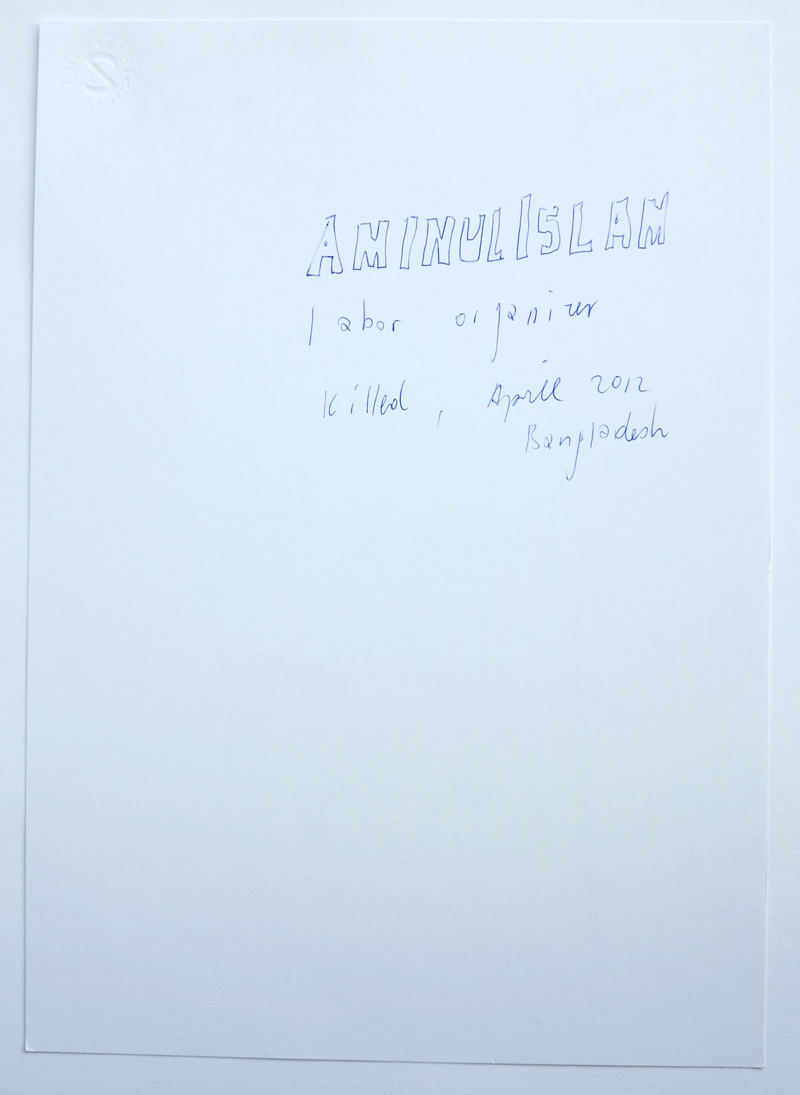 AMINUL ISLAM
labor organizer
Killed, April 2012
Bangladesh